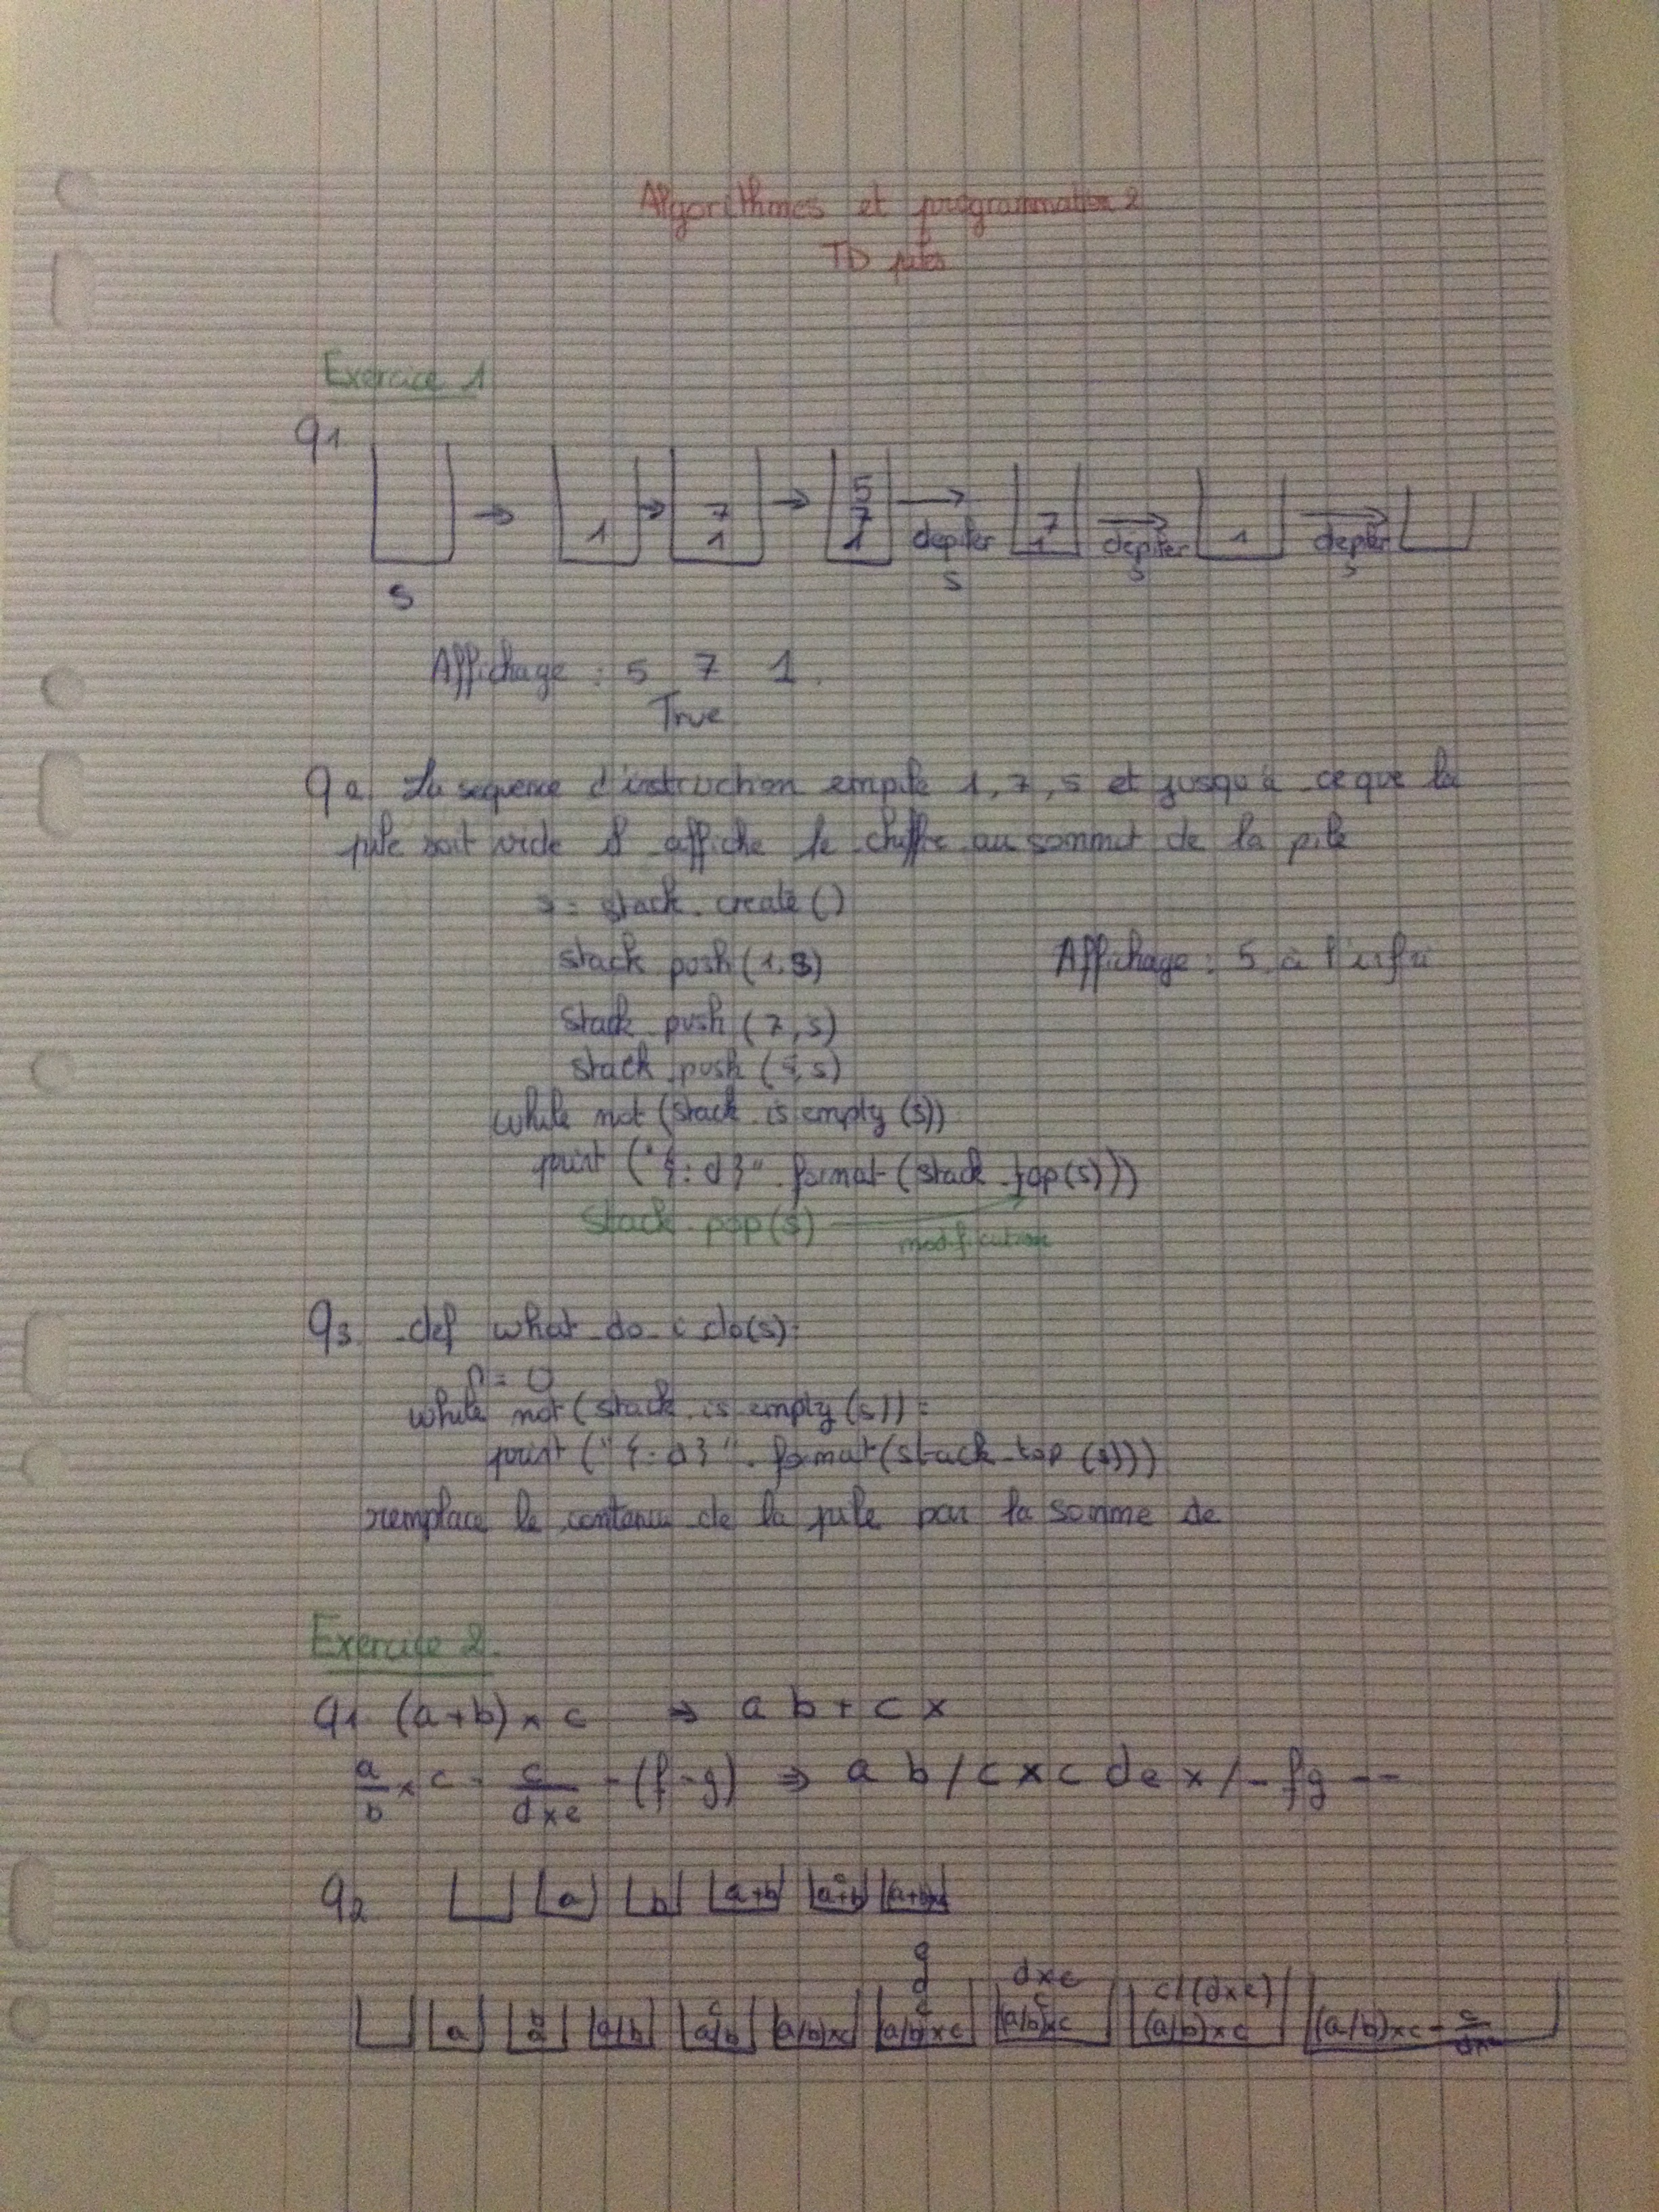 Algorithmes et programmation 2
TD piles
Exercice 1
q1
1
7
1
5
7
1
7
1
1
depiler depiler depiler
s s s s
Affichage : 5 7 1
True
q2 La sequence d'instruction empile 1, 7, 5 et jusqu'à ce que la
pile soit vide affiche le chiffre au sommet de la pile
s = stack.create()
stack.push(1,s) Affichage : 5 à l'infini
stack.push(7,s)
stack.push(5,s)
while not (stack.is empty(s))
print("{:d}".format(stack.top(s)))
stack.pop(s) modification
q3 def what_do_i_do(s):
n = 0
while not(stack.is_empty(s)):
print("{:d}".format(stack.top(s)))
remplace le contenu de la pile par la somme de
Exercice 2.
q1. (a+b) × c ⇒ a b + c ×
a/b × c - c/(d×e) - (f-g) ⇒ a b / c × c d e × / - f g - -
q2 a b a+b c a+b (a+b)×c
e
d d×e
b c c c c/(d×e)
a a a/b a/b (a/b)×c (a/b)×c (a/b)×c (a/b)×c (a/b)×c - c/d×e